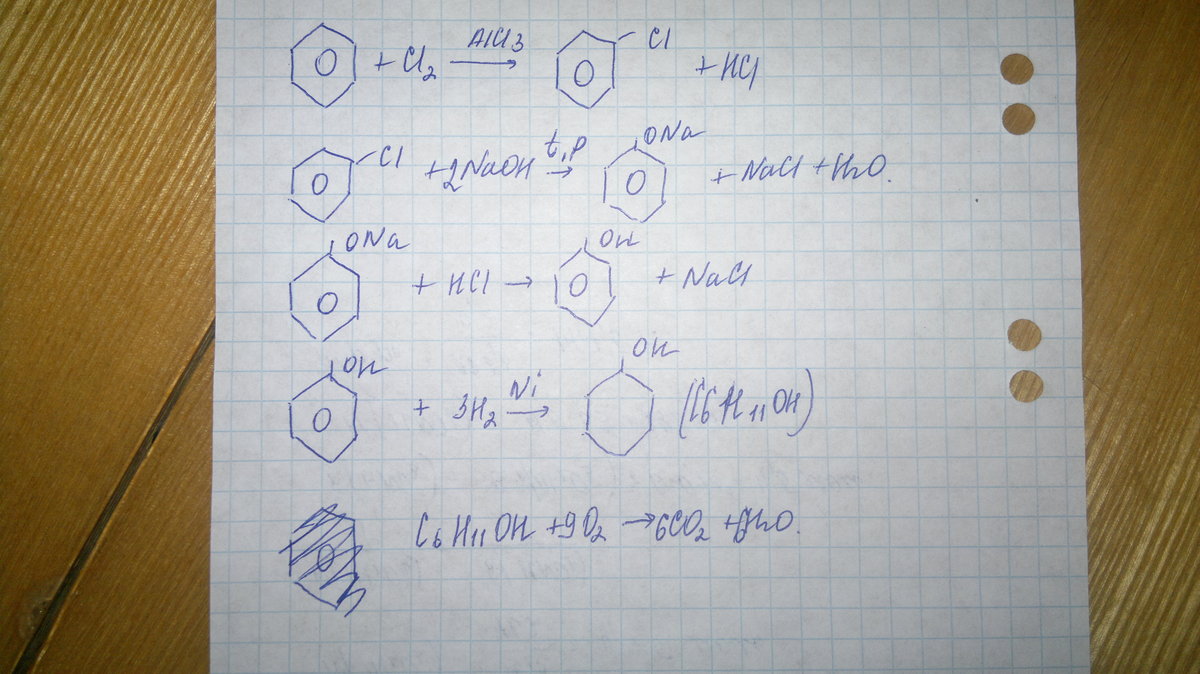 + Cl2 AlCl3 → Cl + HCl
Cl + 2NaOH t, p → ONa + NaCl + H2O.
ONa + HCl → OH + NaCl
OH + 3H2 Ni → OH (C6H11OH)
C6H11OH + 9O2 → 6CO2 + 6H2O.